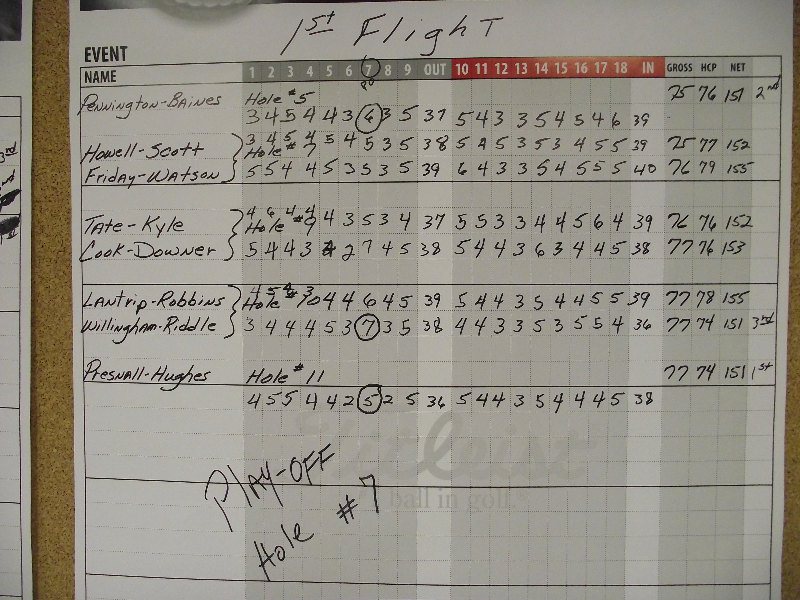 1st Flight
EVENT
NAME 1 2 3 4 5 6 7 8 9 OUT 10 11 12 13 14 15 16 17 18 IN GROSS HCP NET
Pennington-Baines Hole #5 75 76 151 2nd
3 4 5 4 4 3 6 3 5 37 5 4 3 3 5 4 5 4 6 39
Howell-Scott 3 4 5 4 5 4 5 3 5 38 5 5 3 5 3 4 5 5 39 75 77 152
Hole #7
Friday-Watson 5 5 4 4 5 3 5 3 5 39 6 4 3 3 5 4 5 5 5 40 76 79 155
4 6 4 4
Tate-Kyle Hole #9 4 3 5 3 4 37 5 5 3 3 4 4 5 6 4 39 76 76 152
Cook-Downer 5 4 4 3 2 7 4 5 38 5 4 4 3 6 3 4 4 5 38 77 76 153
4 5 4 3
Lantrip-Robbins Hole #10 4 4 6 4 5 39 5 4 4 3 5 4 4 5 5 39 77 78 155
Willingham-Riddle 3 4 4 4 5 3 7 3 5 38 4 4 3 3 5 3 5 5 4 36 77 74 151 3rd
Presnall-Hughes Hole #11 77 74 151 1st
4 5 5 4 4 2 5 2 5 36 5 4 4 3 5 4 4 4 5 38
Titleist
ball in golf.
Play-OFF
Hole #7